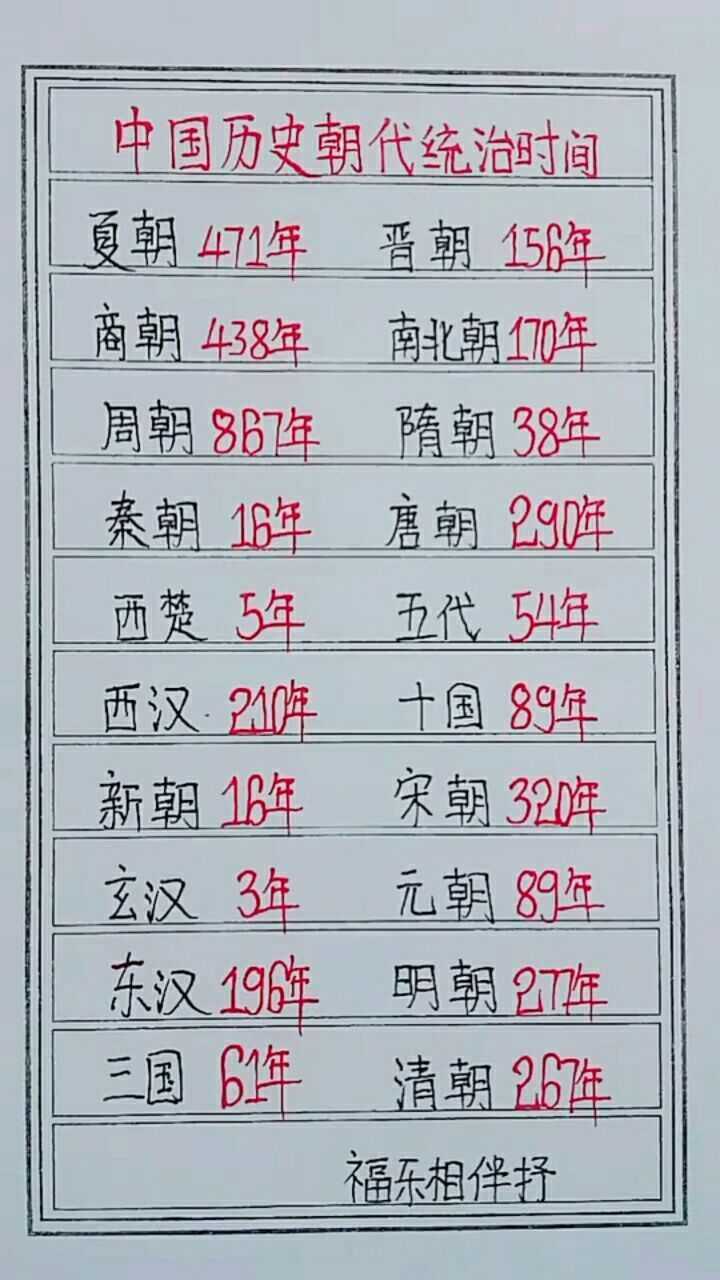 中国历史朝代统治时间
夏朝 471年 晋朝 156年
商朝 438年 南北朝 170年
周朝 867年 隋朝 38年
秦朝 16年 唐朝 290年
西楚 5年 五代 54年
西汉 210年 十国 89年
新朝 16年 宋朝 320年
玄汉 3年 元朝 89年
东汉 196年 明朝 277年
三国 61年 清朝 267年
福乐相伴抒